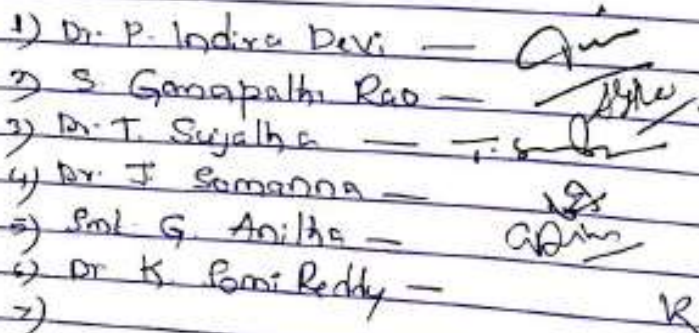 1) Dr. P. Indira Devi —
2) S. Ganapathi Rao —
3) Dr. T. Sujatha —
4) Dr. J Somanna —
5) Smt. G. Anitha —
6) Dr K. Rami Reddy —
7)